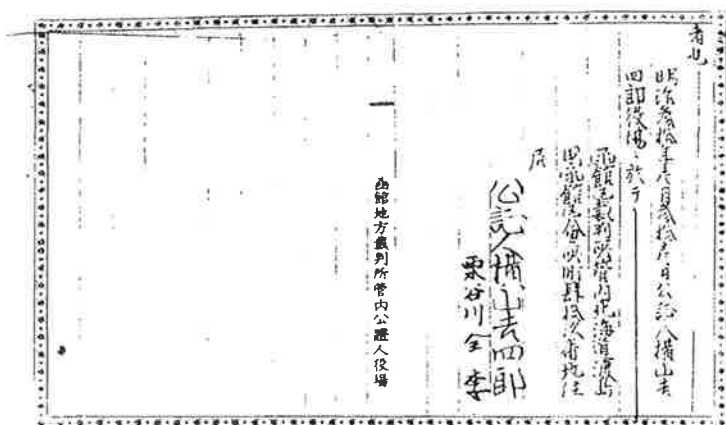 者也
明治参拾年六月参拾日公証人横山吉
四郎役場ニ於テ
函館地方裁判所管内北海道渡島
国函館区
居
公証人横山吉四郎
栗谷川全李
函館地方裁判所管内公證人役場